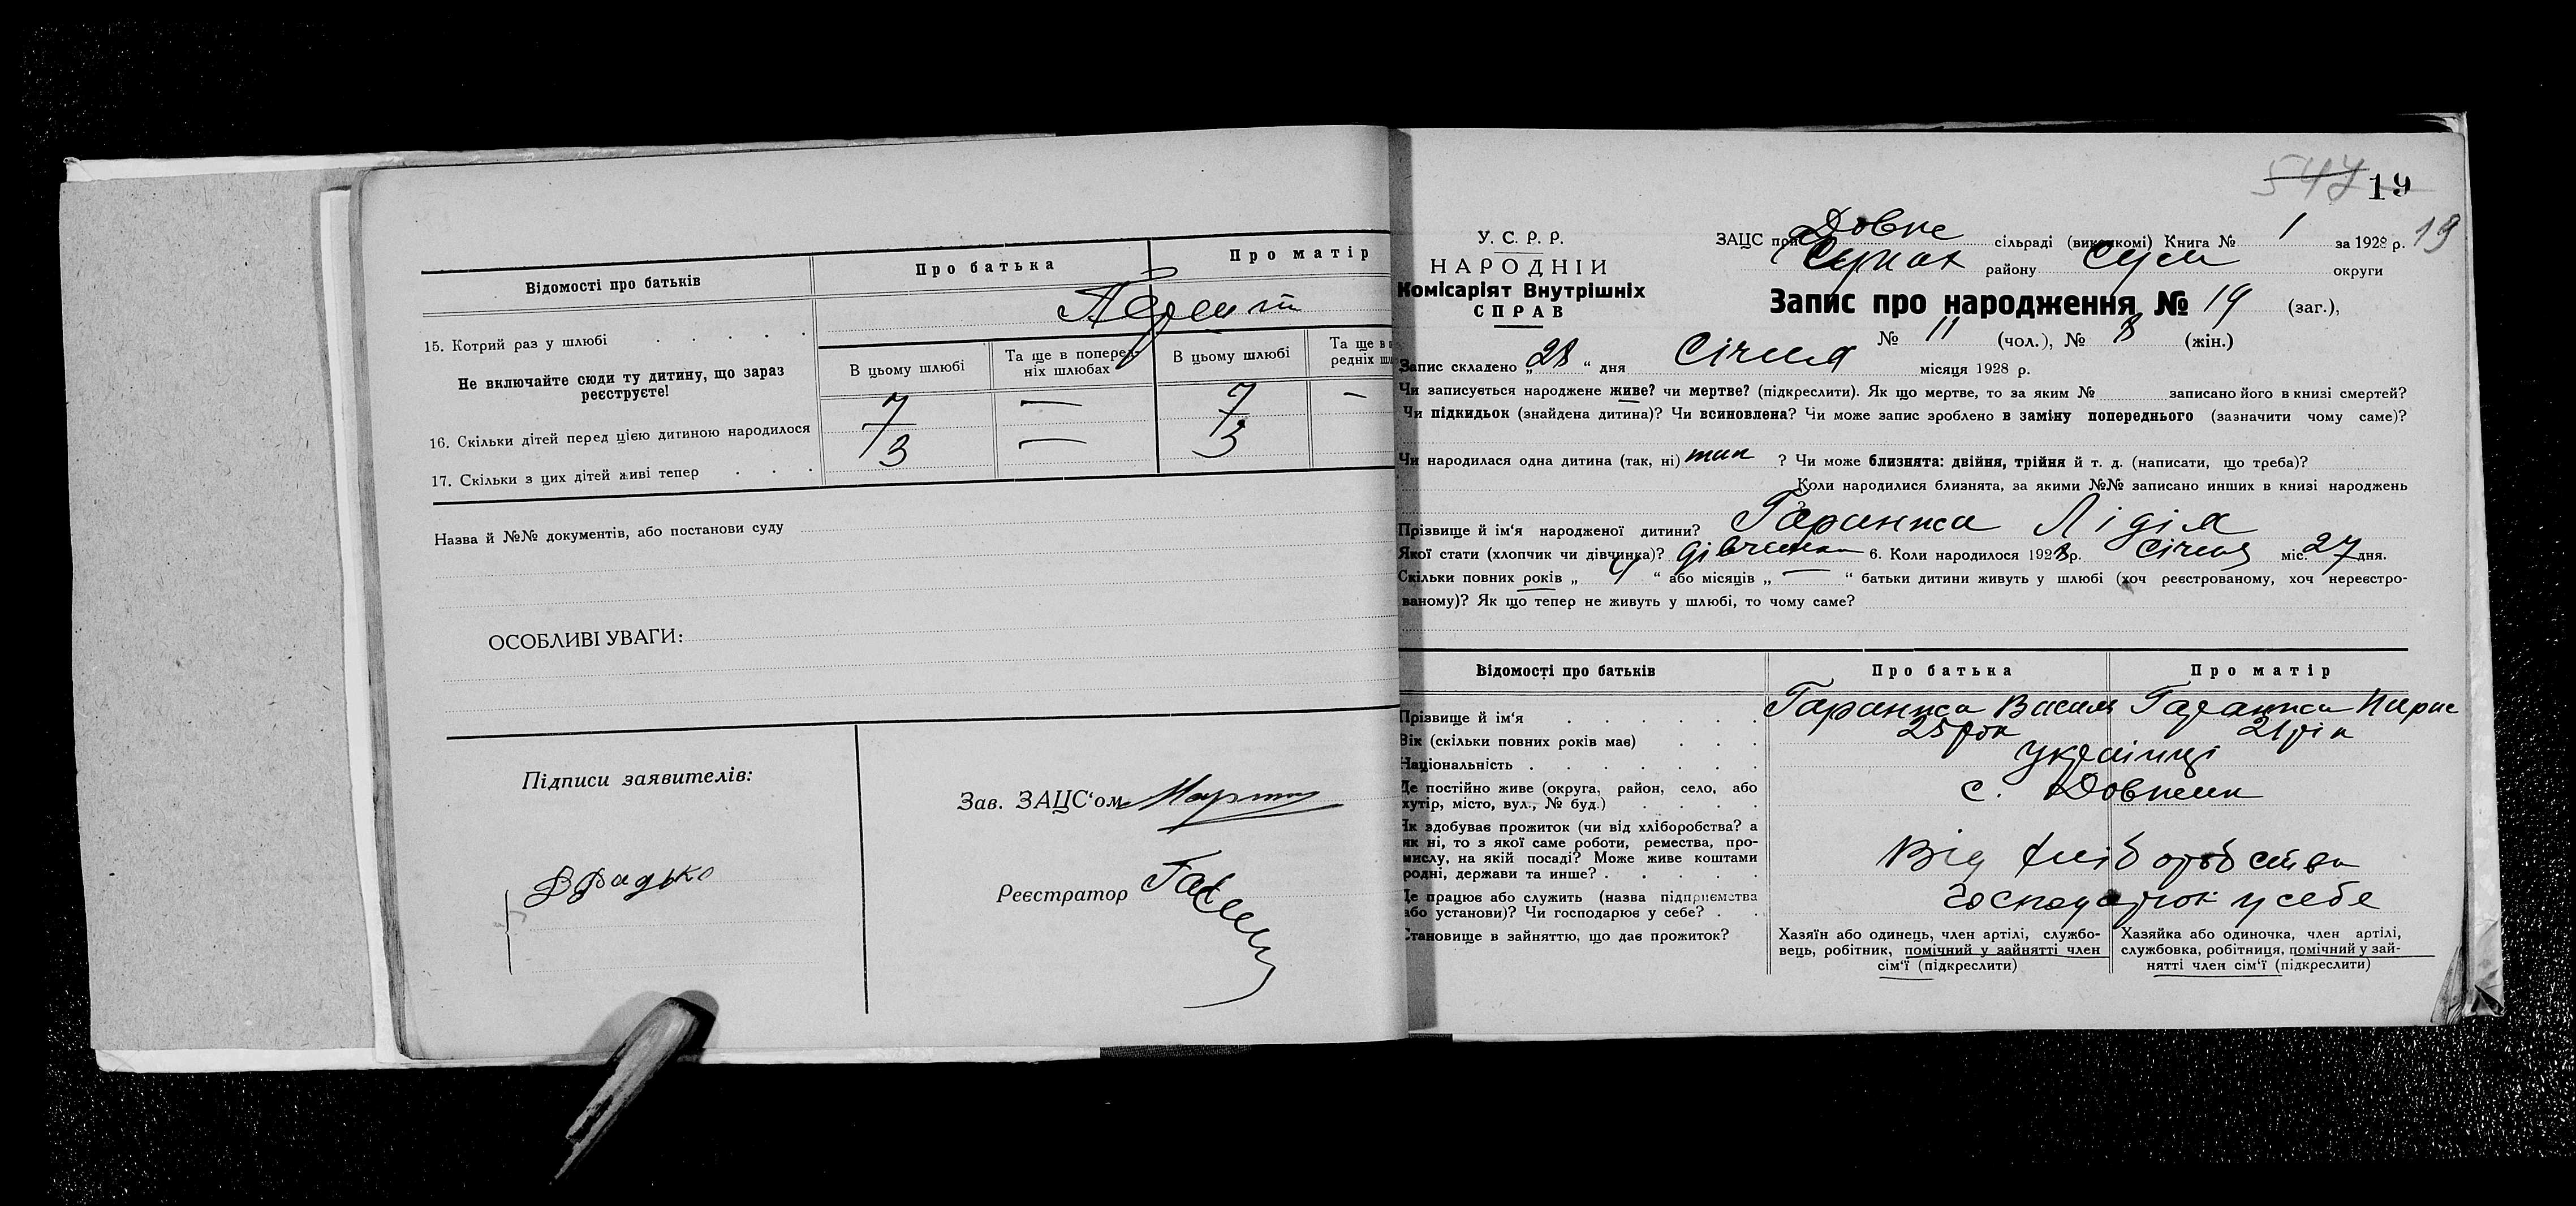 Відомості про батьків
Про батька
Про матір
15. Котрий раз у шлюбі
Не включайте сюди ту дитину, що зараз
реєструєте!
В цьому шлюбі
Та ще в поперед-
ніх шлюбах
В цьому шлюбі
Та ще в
редніх
16. Скільки дітей перед цією дитиною народилося
7 — 7 —
17. Скільки з цих дітей живі тепер
3 — 3
Назва й №№ документів, або постанови суду
ОСОБЛИВІ УВАГИ:
Підписи заявителів:
Зав. ЗАЦС'ом
Реєстратор
547 19
19
У. С. Р. Р.
НАРОДНІЙ
Комісаріят Внутрішніх
СПРАВ
ЗАЦС при Довже сільраді (виконкомі) Книга № 1 за 1928 р.
району Сум округи
Запис про народження № 19 (заг.),
№ 11 (чол.), № 8 (жін.)
Запис складено „ 28 “ дня Січня місяця 1928 р.
Чи записується народжене живе? чи мертве? (підкреслити). Як що мертве, то за яким № записано його в книзі смертей?
Чи підкидьок (знайдена дитина)? Чи всиновлена? Чи може запис зроблено в заміну попереднього (зазначити чому саме)?
Чи народилася одна дитина (так, ні) так ? Чи може близнята: двійня, трійня й т. д. (написати, що треба)?
Коли народилися близнята, за якими №№ записано инших в книзі народжень
Прізвище й ім'я народженої дитини? Гаранжа Лідія
Якої стати (хлопчик чи дівчинка)? дівчинка 6. Коли народилося 1928 р. Січня міс. 27 дня.
Скільки повних років „ “ або місяців „ — “ батьки дитини живуть у шлюбі (хоч реєстрованому, хоч нереєстро-
ваному)? Як що тепер не живуть у шлюбі, то чому саме?
Відомості про батьків
Про батька
Про матір
Прізвище й ім'я
Гаранжа Василь Гаранжа Парас
Вік (скільки повних років має)
25 рок 21 рік
Національність
українці
Де постійно живе (округа, район, село, або
хутір, місто, вул., № буд.)
с. Довжик
Як здобуває прожиток (чи від хліборобства? а
як ні, то з якої саме роботи, ремества, про-
мислу, на якій посаді? Може живе коштами
родні, держави та инше?
Від хліборобства
Де працює або служить (назва підприємства
або установи)? Чи господарює у себе?
господарюк у себе
Становище в зайняттю, що дає прожиток?
Хазяїн або одинець, член артілі, службо-
вець, робітник, помічний у зайнятті член
сім'ї (підкреслити)
Хазяйка або одиночка, член артілі,
службовка, робітниця, помічний у зай-
нятті член сім'ї (підкреслити)